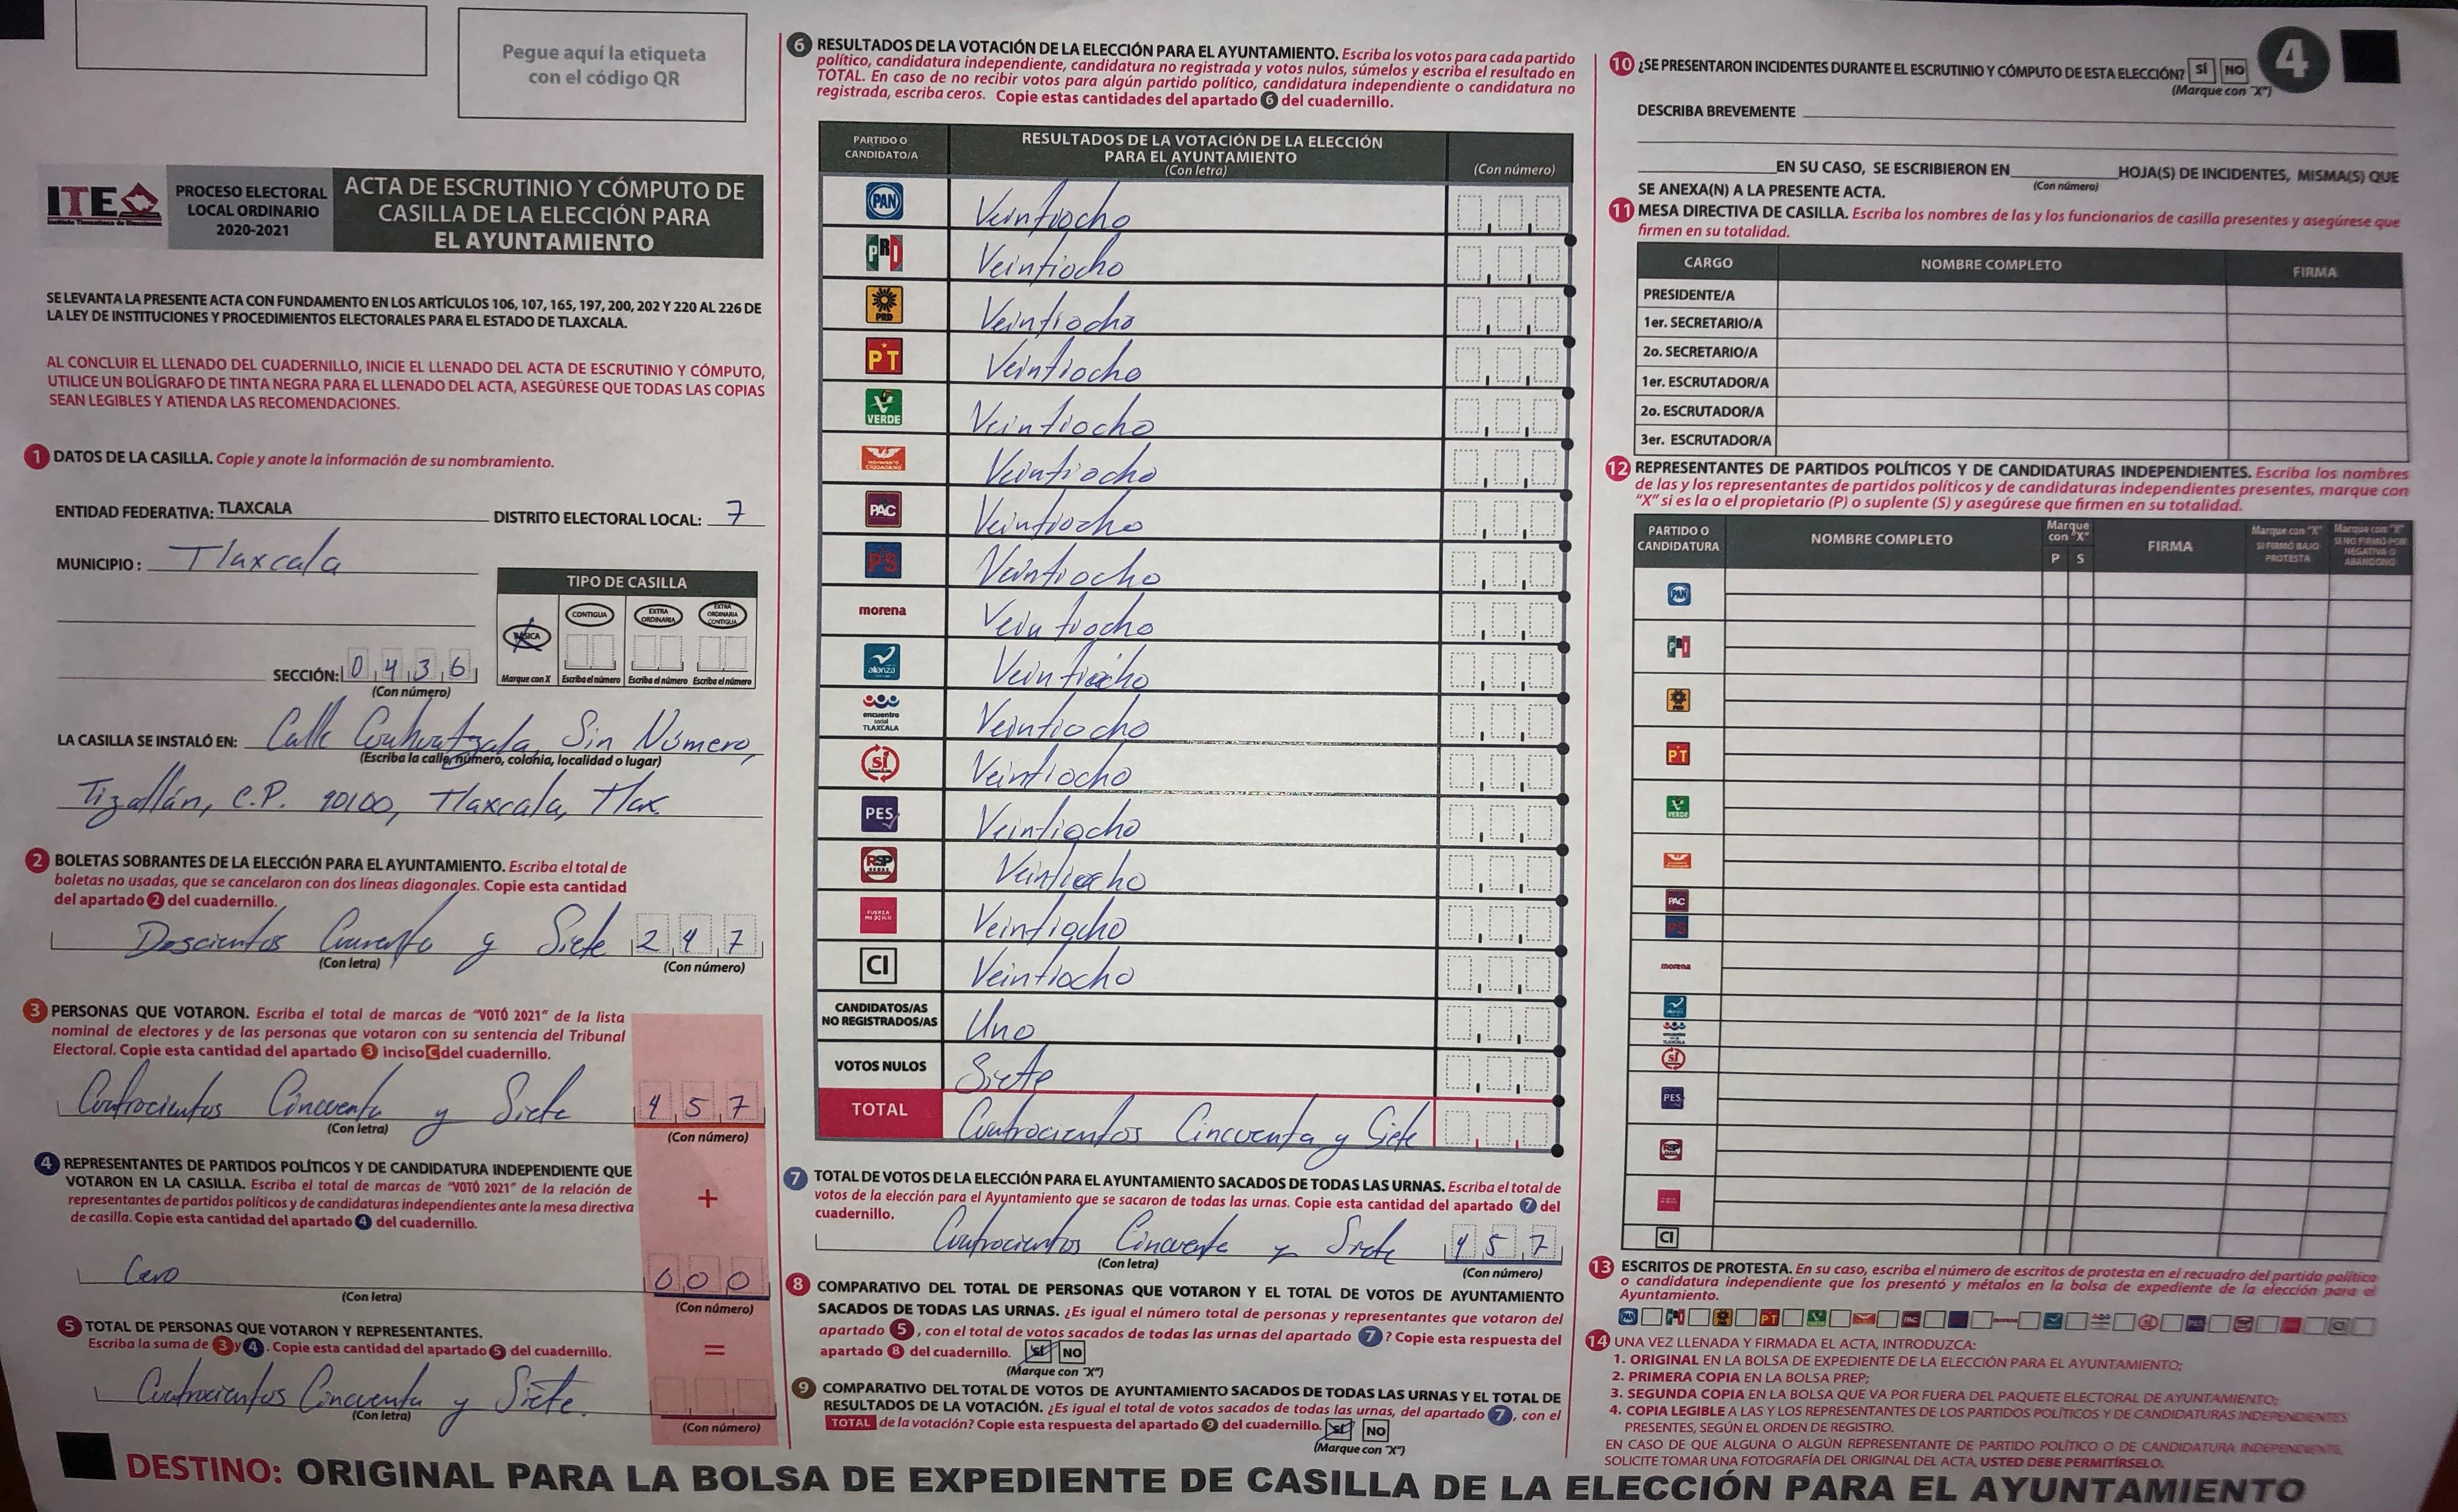 Pegue aquí la etiqueta
con el código QR
ITE
Instituto Tlaxcalteca de Elecciones
PROCESO ELECTORAL
LOCAL ORDINARIO
2020-2021
ACTA DE ESCRUTINIO Y CÓMPUTO DE
CASILLA DE LA ELECCIÓN PARA
EL AYUNTAMIENTO
SE LEVANTA LA PRESENTE ACTA CON FUNDAMENTO EN LOS ARTÍCULOS 106, 107, 165, 197, 200, 202 Y 220 AL 226 DE
LA LEY DE INSTITUCIONES Y PROCEDIMIENTOS ELECTORALES PARA EL ESTADO DE TLAXCALA.
AL CONCLUIR EL LLENADO DEL CUADERNILLO, INICIE EL LLENADO DEL ACTA DE ESCRUTINIO Y CÓMPUTO,
UTILICE UN BOLÍGRAFO DE TINTA NEGRA PARA EL LLENADO DEL ACTA, ASEGÚRESE QUE TODAS LAS COPIAS
SEAN LEGIBLES Y ATIENDA LAS RECOMENDACIONES.
1 DATOS DE LA CASILLA. Copie y anote la información de su nombramiento.
ENTIDAD FEDERATIVA: TLAXCALA DISTRITO ELECTORAL LOCAL: 7
MUNICIPIO: Tlaxcala
TIPO DE CASILLA
BÁSICA CONTIGUA EXTRA ORDINARIA EXTRA ORDINARIA CONTIGUA
Marque con X Escriba el número Escriba el número Escriba el número
SECCIÓN: 0 4 3 6
(Con número)
LA CASILLA SE INSTALÓ EN: Calle Sin Número,
(Escriba la calle, número, colonia, localidad o lugar)
Tizatlán, C.P. 90100, Tlaxcala, Tlax.
2 BOLETAS SOBRANTES DE LA ELECCIÓN PARA EL AYUNTAMIENTO. Escriba el total de
boletas no usadas, que se cancelaron con dos líneas diagonales. Copie esta cantidad
del apartado 2 del cuadernillo.
Doscientos Cuarenta y Siete 2 4 7
(Con letra) (Con número)
3 PERSONAS QUE VOTARON. Escriba el total de marcas de "VOTÓ 2021" de la lista
nominal de electores y de las personas que votaron con su sentencia del Tribunal
Electoral. Copie esta cantidad del apartado 3 inciso C del cuadernillo.
Cuatrocientos Cincuenta y Siete 4 5 7
(Con letra) (Con número)
4 REPRESENTANTES DE PARTIDOS POLÍTICOS Y DE CANDIDATURA INDEPENDIENTE QUE
VOTARON EN LA CASILLA. Escriba el total de marcas de "VOTÓ 2021" de la relación de
representantes de partidos políticos y de candidaturas independientes ante la mesa directiva
de casilla. Copie esta cantidad del apartado 4 del cuadernillo.
+
Cero 0 0 0
(Con letra) (Con número)
5 TOTAL DE PERSONAS QUE VOTARON Y REPRESENTANTES.
Escriba la suma de 3 y 4. Copie esta cantidad del apartado 5 del cuadernillo.
=
Cuatrocientos Cincuenta y Siete.
(Con letra) (Con número)
6 RESULTADOS DE LA VOTACIÓN DE LA ELECCIÓN PARA EL AYUNTAMIENTO. Escriba los votos para cada partido
político, candidatura independiente, candidatura no registrada y votos nulos, súmelos y escriba el resultado en
TOTAL. En caso de no recibir votos para algún partido político, candidatura independiente o candidatura no
registrada, escriba ceros. Copie estas cantidades del apartado 6 del cuadernillo.
PARTIDO O CANDIDATO/A
RESULTADOS DE LA VOTACIÓN DE LA ELECCIÓN
PARA EL AYUNTAMIENTO
(Con letra) (Con número)
PAN Veintiocho
PRI Veintiocho
PRD Veintiocho
PT Veintiocho
VERDE Veintiocho
MOVIMIENTO CIUDADANO Veintiocho
PAC Veintiocho
PS Veintiocho
morena Veintiocho
alianza Veintiocho
encuentro social TLAXCALA Veintiocho
SÍ Veintiocho
PES Veintiocho
RSP Veintiocho
FUERZA MÉXICO Veintiocho
CI Veintiocho
CANDIDATOS/AS
NO REGISTRADOS/AS Uno
VOTOS NULOS Siete
TOTAL Cuatrocientos Cincuenta y Siete
7 TOTAL DE VOTOS DE LA ELECCIÓN PARA EL AYUNTAMIENTO SACADOS DE TODAS LAS URNAS. Escriba el total de
votos de la elección para el Ayuntamiento que se sacaron de todas las urnas. Copie esta cantidad del apartado 7 del
cuadernillo.
Cuatrocientos Cincuenta y Siete 4 5 7
(Con letra) (Con número)
8 COMPARATIVO DEL TOTAL DE PERSONAS QUE VOTARON Y EL TOTAL DE VOTOS DE AYUNTAMIENTO
SACADOS DE TODAS LAS URNAS. ¿Es igual el número total de personas y representantes que votaron del
apartado 5, con el total de votos sacados de todas las urnas del apartado 7? Copie esta respuesta del
apartado 8 del cuadernillo. SÍ NO
(Marque con "X")
9 COMPARATIVO DEL TOTAL DE VOTOS DE AYUNTAMIENTO SACADOS DE TODAS LAS URNAS Y EL TOTAL DE
RESULTADOS DE LA VOTACIÓN. ¿Es igual el total de votos sacados de todas las urnas, del apartado 7, con el
TOTAL de la votación? Copie esta respuesta del apartado 9 del cuadernillo. SÍ NO
(Marque con "X")
10 ¿SE PRESENTARON INCIDENTES DURANTE EL ESCRUTINIO Y CÓMPUTO DE ESTA ELECCIÓN? SÍ NO
(Marque con "X")
4
DESCRIBA BREVEMENTE
EN SU CASO, SE ESCRIBIERON EN HOJA(S) DE INCIDENTES, MISMA(S) QUE
(Con número)
SE ANEXA(N) A LA PRESENTE ACTA.
11 MESA DIRECTIVA DE CASILLA. Escriba los nombres de las y los funcionarios de casilla presentes y asegúrese que
firmen en su totalidad.
CARGO NOMBRE COMPLETO FIRMA
PRESIDENTE/A
1er. SECRETARIO/A
2o. SECRETARIO/A
1er. ESCRUTADOR/A
2o. ESCRUTADOR/A
3er. ESCRUTADOR/A
12 REPRESENTANTES DE PARTIDOS POLÍTICOS Y DE CANDIDATURAS INDEPENDIENTES. Escriba los nombres
de las y los representantes de partidos políticos y de candidaturas independientes presentes, marque con
"X" si es la o el propietario (P) o suplente (S) y asegúrese que firmen en su totalidad.
PARTIDO O CANDIDATURA NOMBRE COMPLETO Marque con "X" P S FIRMA Marque con "X" SI FIRMÓ BAJO PROTESTA Marque con "X" SI NO FIRMÓ POR NEGATIVA O ABANDONO
PAN
PRI
PRD
PT
VERDE
PAC
PS
morena
alianza
SÍ
PES
RSP
CI
13 ESCRITOS DE PROTESTA. En su caso, escriba el número de escritos de protesta en el recuadro del partido político
o candidatura independiente que los presentó y métalos en la bolsa de expediente de la elección para el
Ayuntamiento.
14 UNA VEZ LLENADA Y FIRMADA EL ACTA, INTRODUZCA:
1. ORIGINAL EN LA BOLSA DE EXPEDIENTE DE LA ELECCIÓN PARA EL AYUNTAMIENTO;
2. PRIMERA COPIA EN LA BOLSA PREP;
3. SEGUNDA COPIA EN LA BOLSA QUE VA POR FUERA DEL PAQUETE ELECTORAL DE AYUNTAMIENTO;
4. COPIA LEGIBLE A LAS Y LOS REPRESENTANTES DE LOS PARTIDOS POLÍTICOS Y DE CANDIDATURAS INDEPENDIENTES
PRESENTES, SEGÚN EL ORDEN DE REGISTRO.
EN CASO DE QUE ALGUNA O ALGÚN REPRESENTANTE DE PARTIDO POLÍTICO O DE CANDIDATURA INDEPENDIENTE,
SOLICITE TOMAR UNA FOTOGRAFÍA DEL ORIGINAL DEL ACTA, USTED DEBE PERMITÍRSELO.
DESTINO: ORIGINAL PARA LA BOLSA DE EXPEDIENTE DE CASILLA DE LA ELECCIÓN PARA EL AYUNTAMIENTO